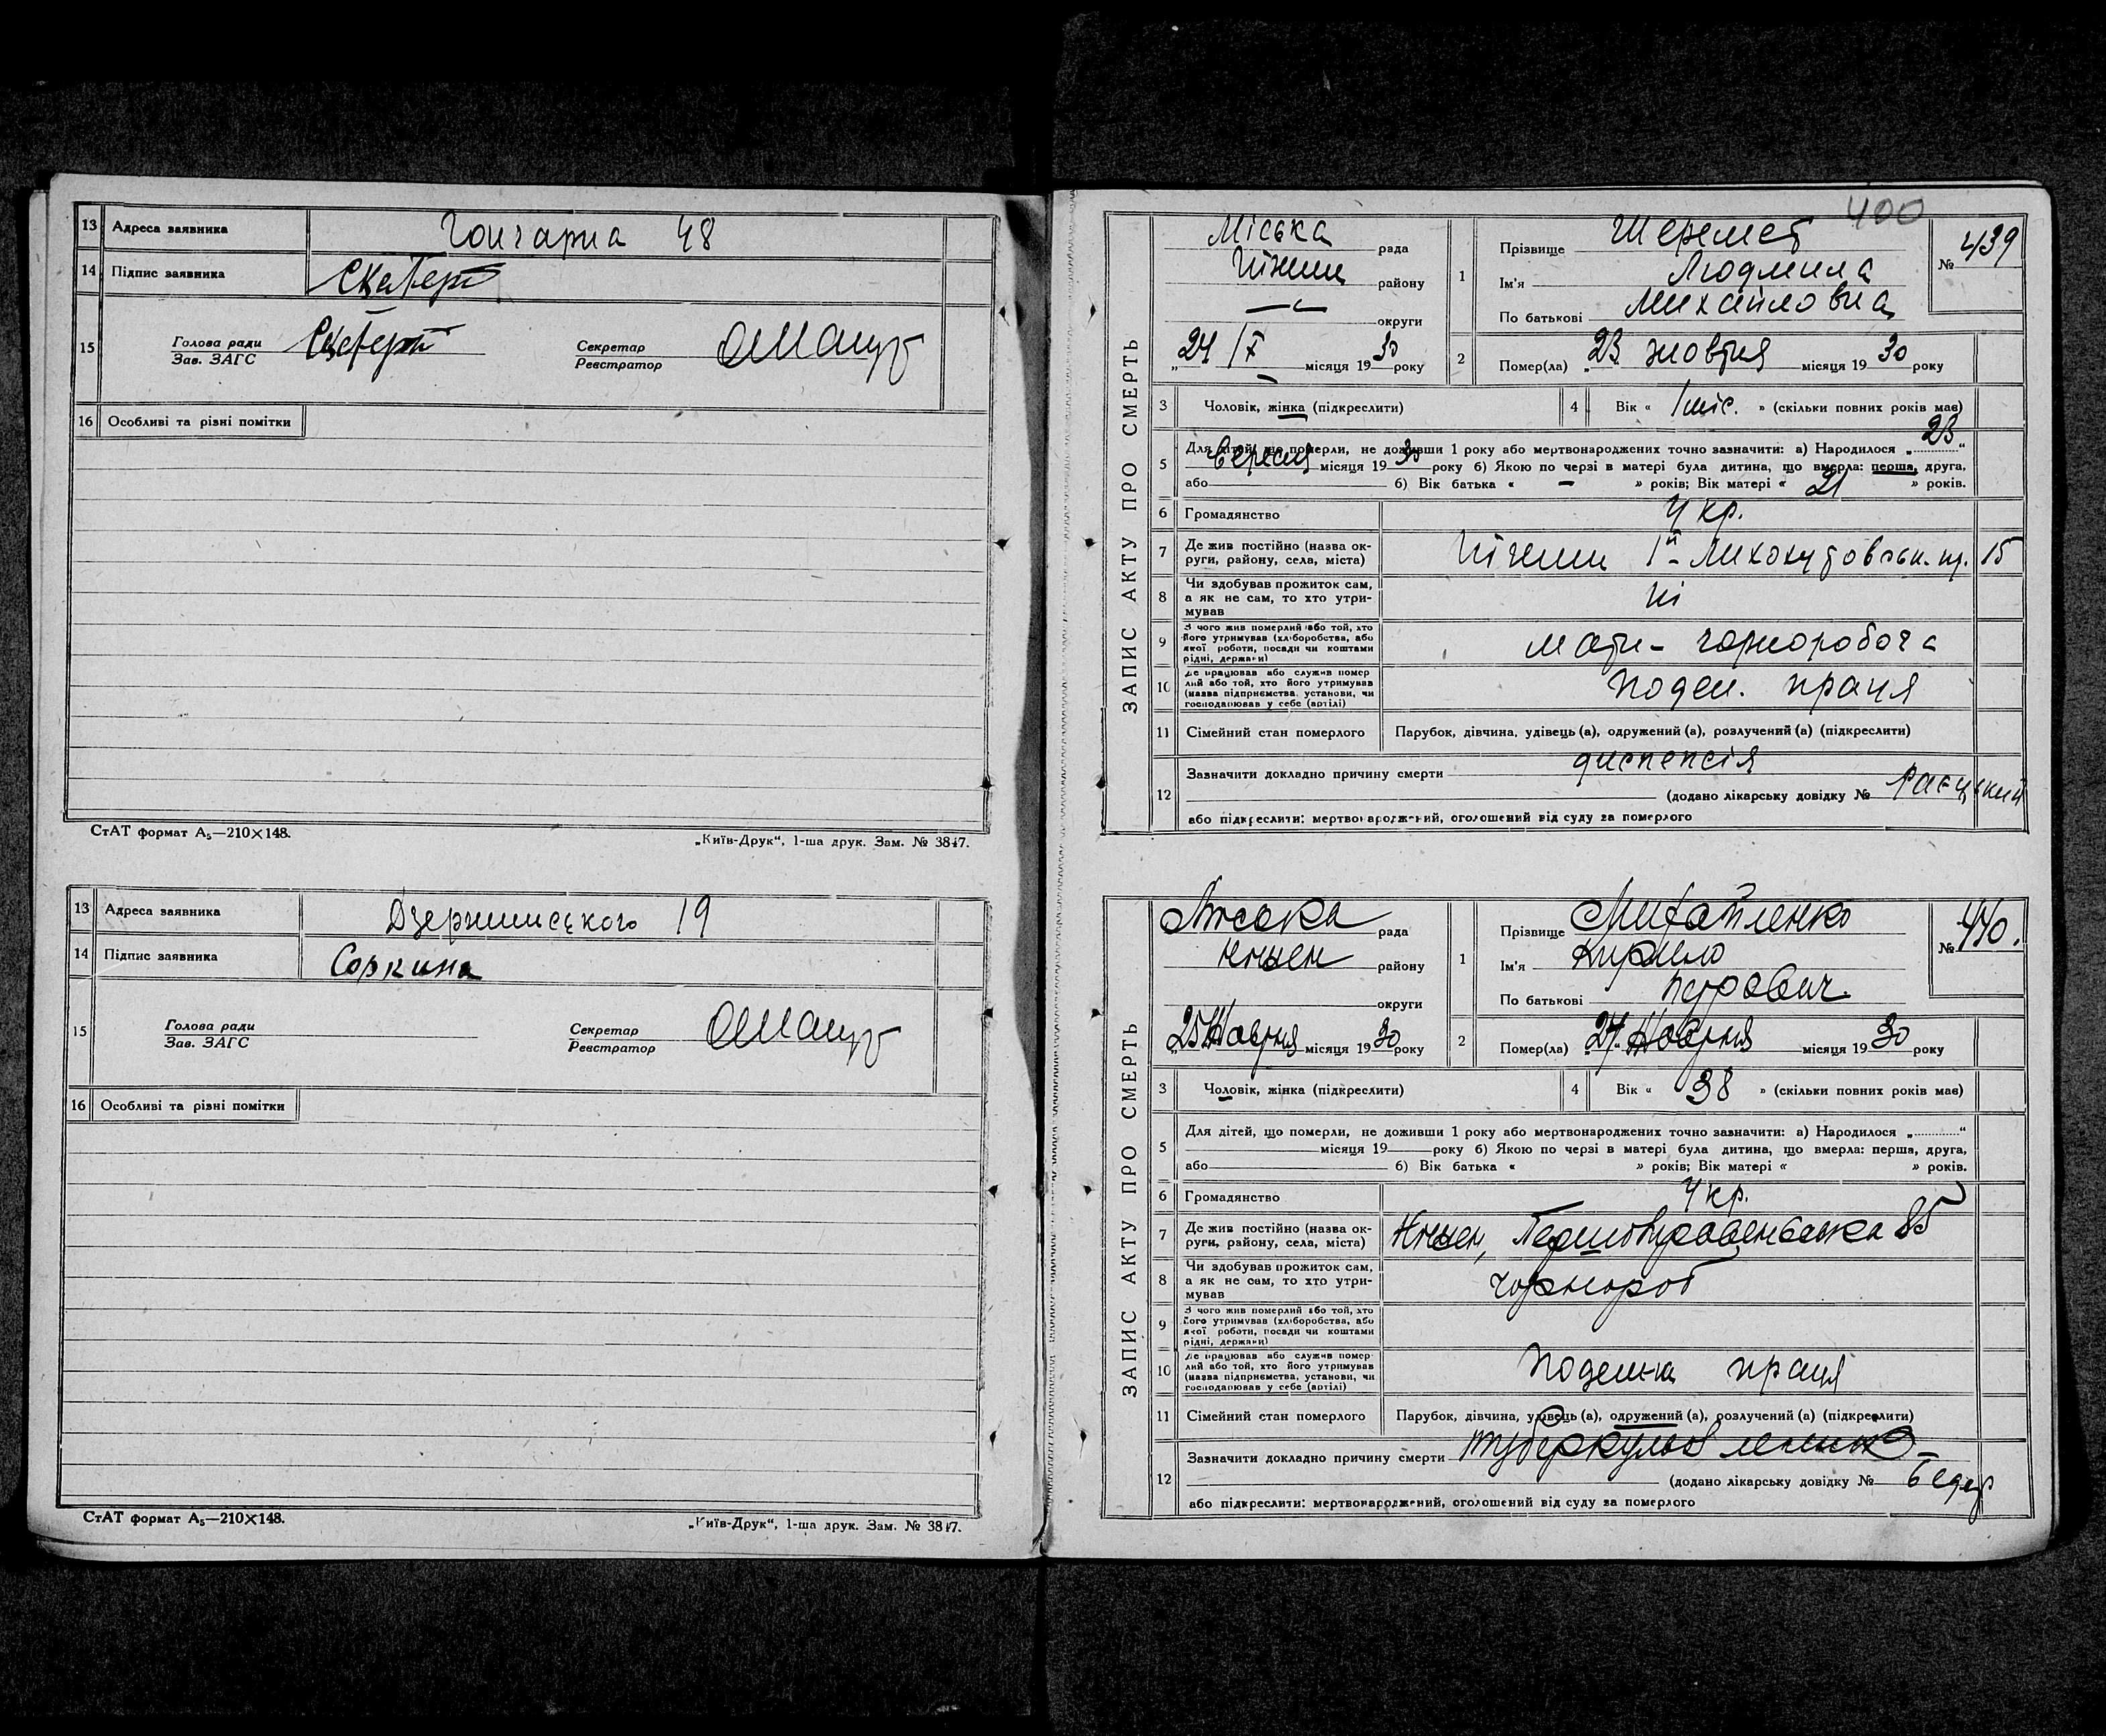 13 Адреса заявника Гончарна 48
14 Підпис заявника
15 Голова ради Секретар
Зав. ЗАГС Реєстратор
16 Особливі та різні помітки
СтАТ формат А₅—210×148. „Київ-Друк“, 1-ша друк. Зам. № 3847.
13 Адреса заявника Дзержинського 19
14 Підпис заявника Соркина
15 Голова ради Секретар
Зав. ЗАГС Реєстратор
16 Особливі та різні помітки
СтАТ формат А₅—210×148. „Київ-Друк“, 1-ша друк. Зам. № 3847.
400
ЗАПИС АКТУ ПРО СМЕРТЬ
Міська рада
Ніжин району
округи
24 /X місяця 1930 року
1 Прізвище Шеремет
Ім'я Людмила
По батькові Михайловна
№ 439
2 Помер(ла) „23 жовтня місяця 1930 року
3 Чоловік, жінка (підкреслити) 4 Вік « 1 міс. » (скільки повних років має)
5 Для дітей, що померли, не доживши 1 року або мертвонароджених точно зазначити: а) Народилося „23“
Вересня місяця 1930 року б) Якою по черзі в матері була дитина, що вмерла: перша, друга,
або б) Вік батька « – » років; Вік матері « 21 » років.
6 Громадянство Укр.
7 Де жив постійно (назва ок-
руги, району, села, міста) Ніжин 1й 15
8 Чи здобував прожиток сам,
а як не сам, то хто утри-
мував Ні
9 З чого жив померлий або той, хто
його утримував (хліборобства, або
якої роботи, посади чи коштами
рідні, держави) мати - чорноробоча
10 Де працював або служив помер
лий або той, хто його утримував
(назва підприємства, установи, чи
господарював у себе (артілі) Поден. праця
11 Сімейний стан померлого Парубок, дівчина, удівець (а), одружений (а), розлучений (а) (підкреслити)
12 Зазначити докладно причину смерти диспепсія
(додано лікарську довідку №
або підкреслити: мертвонароджений, оголошений від суду за померлого
ЗАПИС АКТУ ПРО СМЕРТЬ
Міська рада
Ніжен району
округи
„25 Жовтня місяця 1930 року
1 Прізвище Михайленко
Ім'я Кирило
По батькові Петрович
№ 440.
2 Помер(ла) „24 Жовтня місяця 1930 року
3 Чоловік, жінка (підкреслити) 4 Вік « 38 » (скільки повних років має)
5 Для дітей, що померли, не доживши 1 року або мертвонароджених точно зазначити: а) Народилося „ “
місяця 19 року б) Якою по черзі в матері була дитина, що вмерла: перша, друга,
або б) Вік батька « » років; Вік матері « » років.
6 Громадянство Укр.
7 Де жив постійно (назва ок-
руги, району, села, міста) Ніжен, 85
8 Чи здобував прожиток сам,
а як не сам, то хто утри-
мував чорнороб
9 З чого жив померлий або той, хто
його утримував (хліборобства, або
якої роботи, посади чи коштами
рідні, держави)
10 Де працював або служив помер
лий або той, хто його утримував
(назва підприємства, установи, чи
господарював у себе (артілі) Поденна праця
11 Сімейний стан померлого Парубок, дівчина, удівець (а), одружений (а), розлучений (а) (підкреслити)
12 Зазначити докладно причину смерти туберкульоз
(додано лікарську довідку №
або підкреслити: мертвонароджений, оголошений від суду за померлого